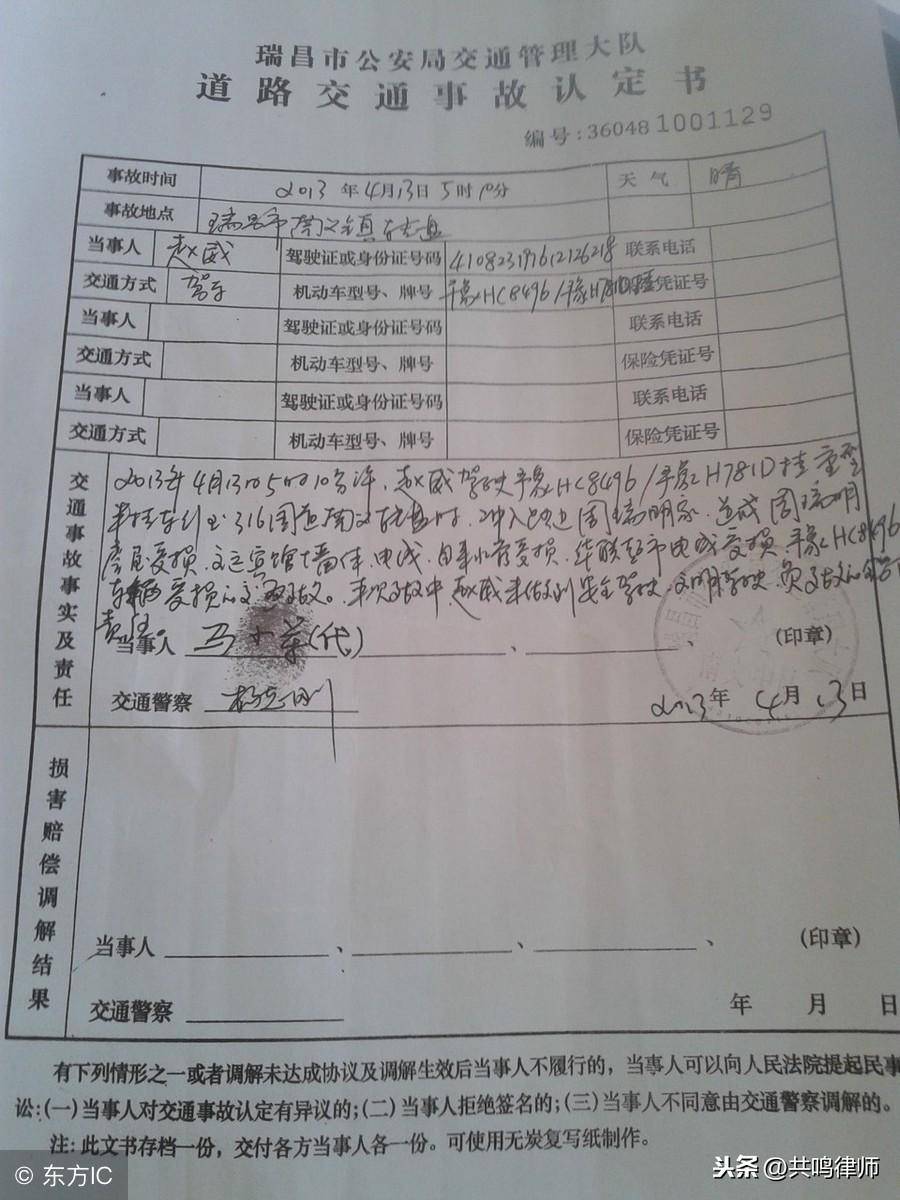 瑞昌市公安局交通管理大队
道路交通事故认定书
编号:360481001129
事故时间 2013年4月13日5时10分 天气 晴
事故地点 瑞昌市南义镇转盘
当事人 赵威 驾驶证或身份证号码 410823197612126218 联系电话
交通方式 驾车 机动车型号、牌号 豫HC8496/豫H781D挂 保险凭证号
当事人 驾驶证或身份证号码 联系电话
交通方式 机动车型号、牌号 保险凭证号
当事人 驾驶证或身份证号码 联系电话
交通方式 机动车型号、牌号 保险凭证号
交通事故事实及责任
2013年4月13日5时10分许,赵威驾驶豫HC8496/豫H781D挂重型
半挂车行至316国道南义转盘时,冲入路边周瑞明家,造成周瑞明
房屋受损,文运宾馆墙体、电线、自来水管受损,华联超市电线受损,豫HC8496
车辆受损的交通事故。本次事故中,赵威未做到安全驾驶、文明驾驶,负事故的全部
责任。
当事人 马 荣(代) 、 、 (印章)
交通警察 2013年4月13日
损害赔偿调解结果
当事人 、 、 、 (印章)
交通警察 年 月 日
有下列情形之一或者调解未达成协议及调解生效后当事人不履行的,当事人可以向人民法院提起民事
讼:(一)当事人对交通事故认定有异议的;(二)当事人拒绝签名的;(三)当事人不同意由交通警察调解的。
注:此文书存档一份,交付各方当事人各一份。可使用无炭复写纸制作。
© 东方IC
头条@共鸣律师